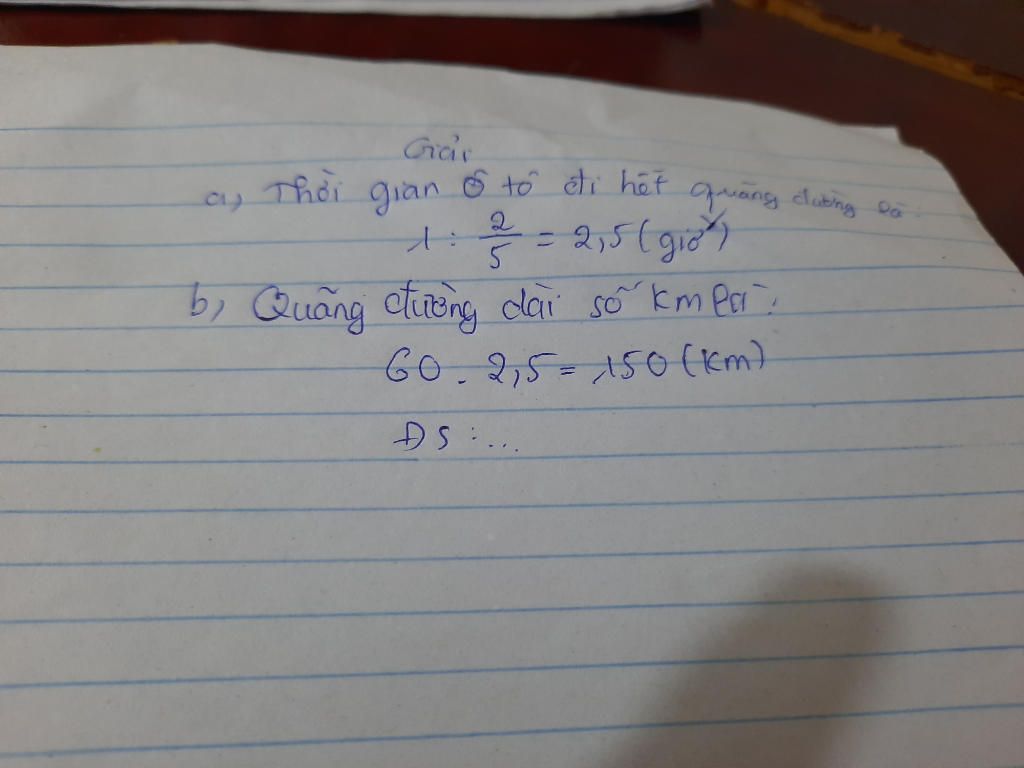 Giải
a, Thời gian ô tô đi hết quãng đường là:
1 : 2/5 = 2,5 (giờ)
b, Quãng đường dài số km là:
60 . 2,5 = 150 (km)
ĐS : ...